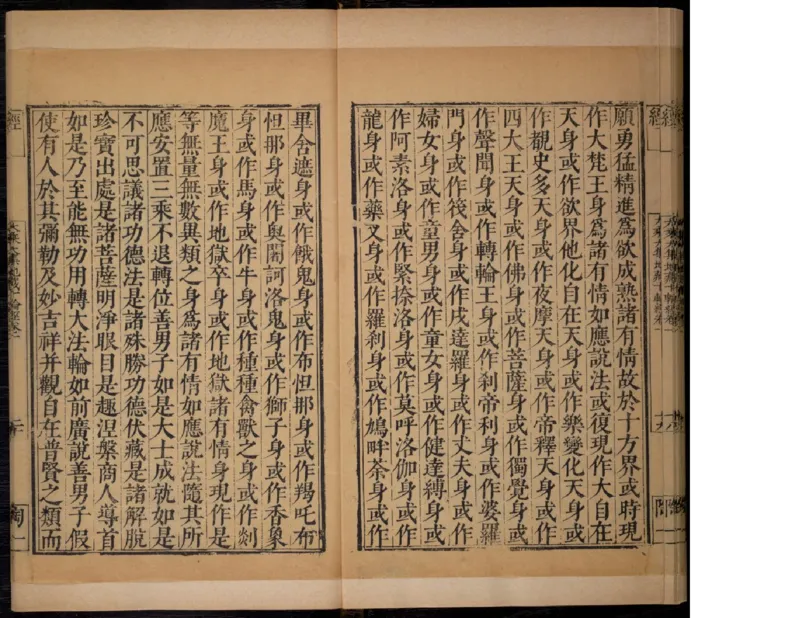 願勇猛精進爲欲成熟諸有情故於十方界或時現
作大梵王身爲諸有情如應說法或復現作大自在
天身或作欲界他化自在天身或作樂變化天身或
作覩史多天身或作夜摩天身或作帝釋天身或作
四大王天身或作佛身或作菩薩身或作獨覺身或
作聲聞身或作轉輪王身或作刹帝利身或作婆羅
門身或作筏舍身或作戍達羅身或作丈夫身或作
婦女身或作童男身或作童女身或作健達縛身或
作阿素洛身或作緊捺洛身或作莫呼洛伽身或作
龍身或作藥叉身或作羅刹身或作鳩畔荼身或作
畢舍遮身或作餓鬼身或作布怛那身或作羯吒布
怛那身或作奥闍訶洛鬼身或作獅子身或作香象
身或作馬身或作牛身或作種種禽獸之身或作剡
魔王身或作地獄卒身或作地獄諸有情身現作是
等無量無數異類之身爲諸有情如應說法隨其所
應安置三乘不退轉位善男子如是大士成就如是
不可思議諸功德法是諸殊勝功德伏藏是諸解脫
珍寶出處是諸菩薩明淨眼目是趣涅槃商人導首
如是乃至能無功用轉大法輪如前廣說善男子假
使有人於其彌勒及妙吉祥并觀自在普賢之類而
經